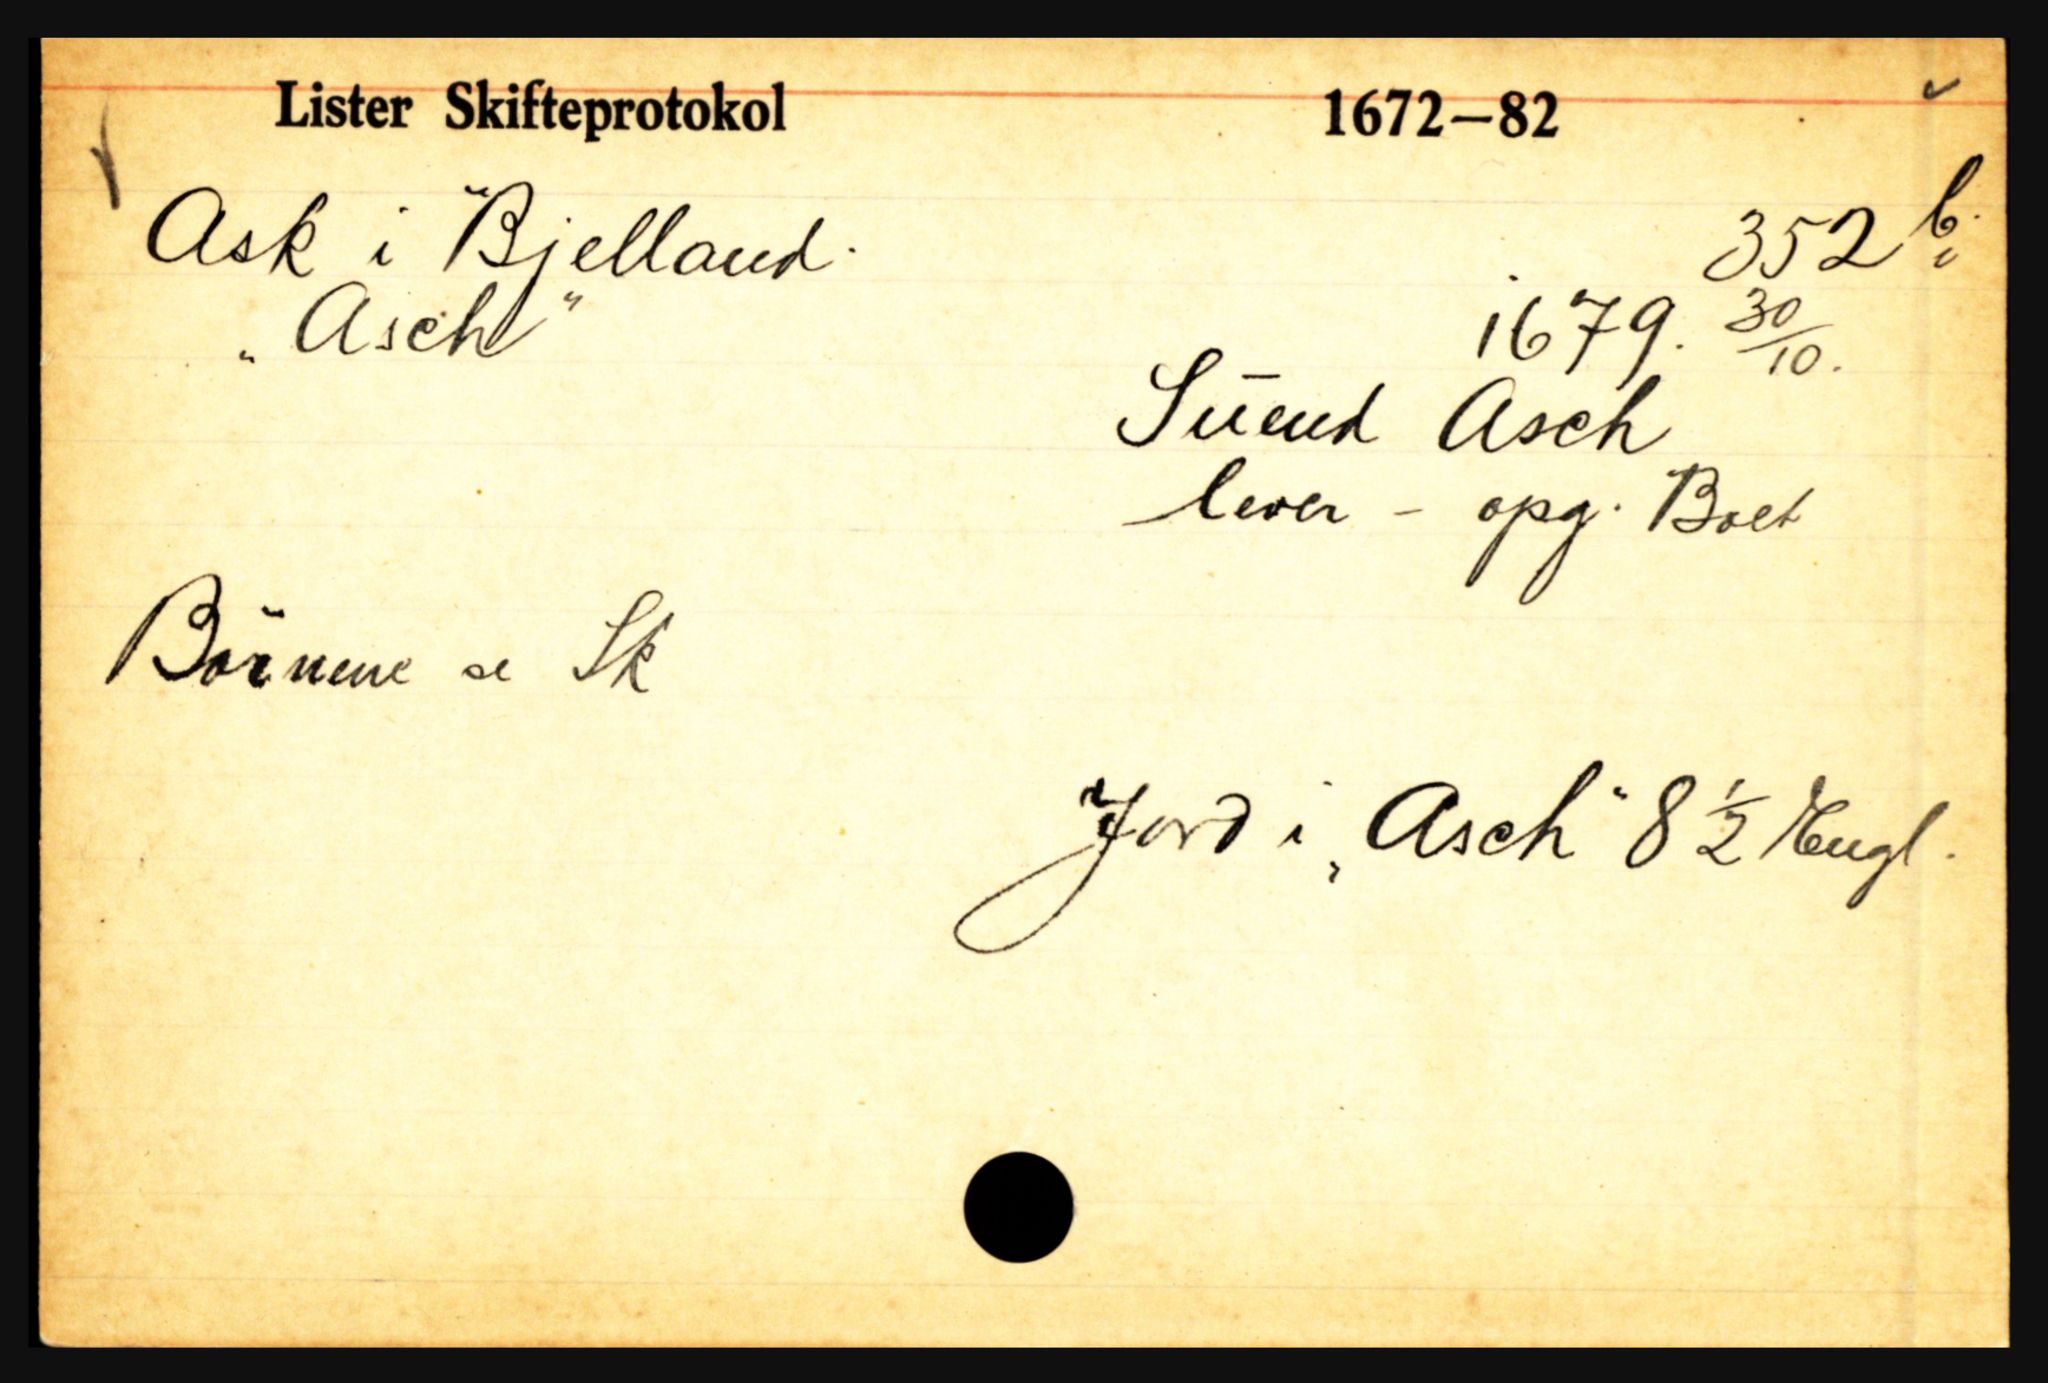 Lister Skifteprotokol 1672—82
Ask i Bjelland. 352 b.
„Asch" 1679. 30/10.
Suend Asch
lever - opg. Boet
Börnene se Sk
Jord i „Asch" 8 1/2 Engl.